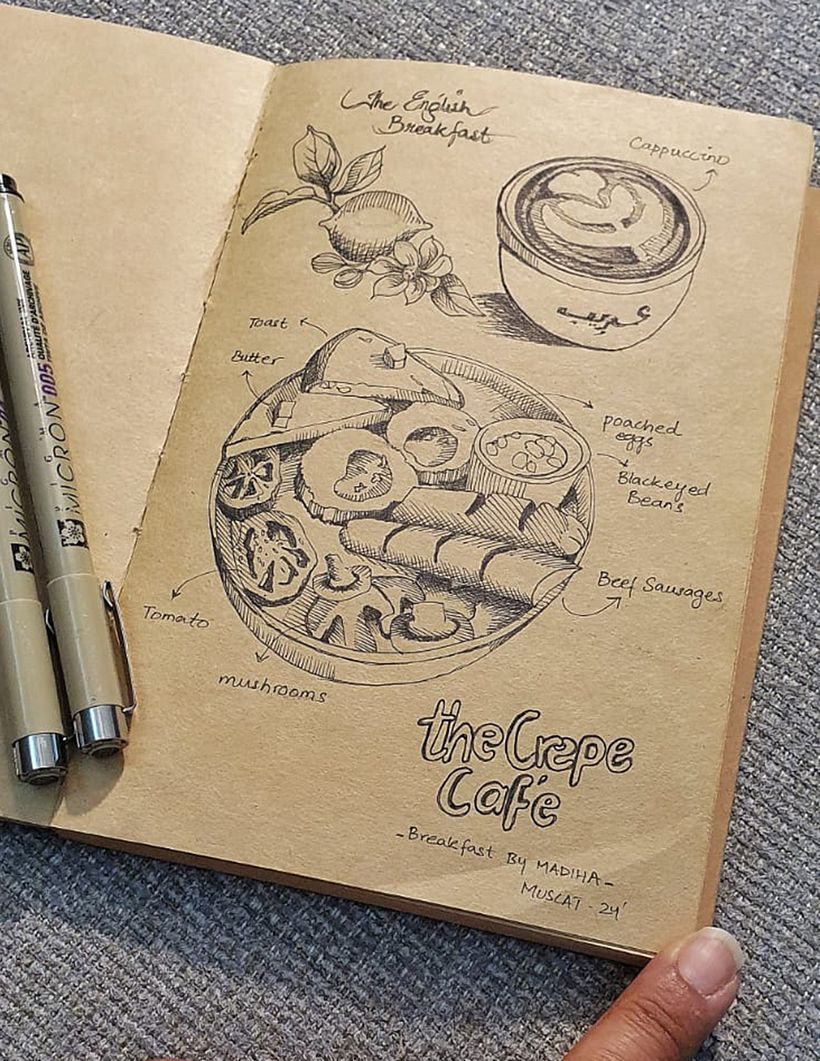 The English
Breakfast
Cappuccino
Toast
Butter
poached
eggs
Blackeyed
Beans
Beef Sausages
Tomato
mushrooms
the Crepe
Café
-Breakfast By MADIHA-
MUSCAT - 24'
MICRON 005
QUALITÉ D'ARCHIVAGE
MICRON